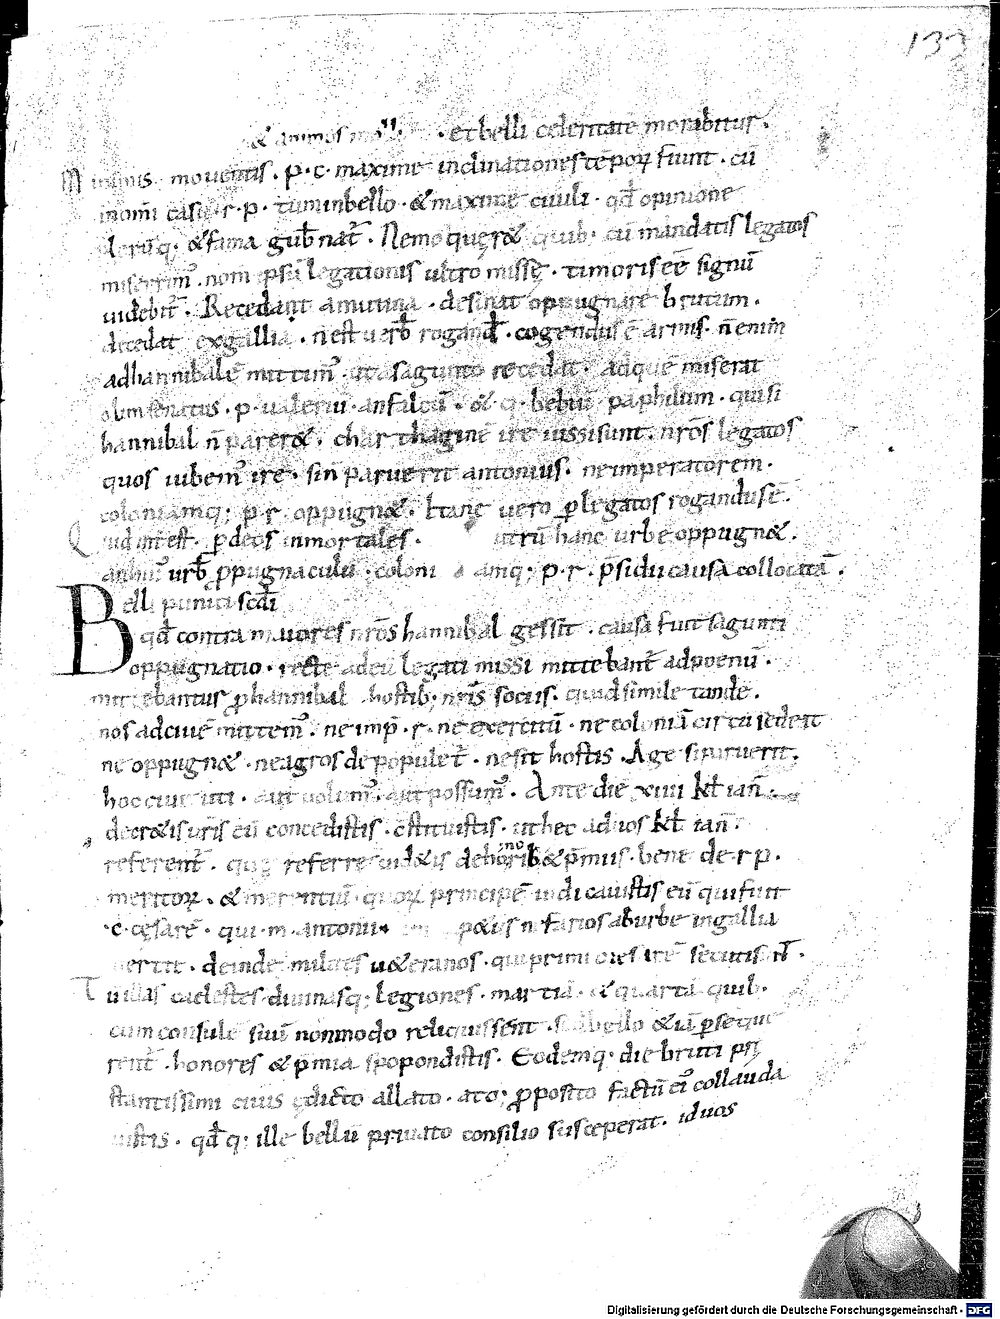 133
& animos moll · et belli celeritate morabitur.
Minimis momentis. p. c. maxime inclinationes tēporꝝ fiunt. cū
in omī casu. r. p. tum in bello. & maxime ciuili. qd̄ opinione
plerūq; & fama gub̄nat̄. Nemo quęr& quib; cū mandatis legatos
miserim᷒. nom ipsū legationis ultro missę. timoris eē signū
uidebit̄. Recedant a mutina. desinat oppugnare brutum.
decedat ex gallia. n̄ est uerb̄ rogand̄. cogendus ē armis. n̄ enim
ad hannibalē mittim᷒. ut a sagunto recedat. ad quē miserat
olim senatus. p. ualeriū. anfalcū. & q. bebiū paphilum. qui si
hannibal n̄ parer&. charthaginē ire iussi sunt. nr̄os legatos
quos iubem᷒ ire. si n̄ paruerit antonius. ne imperatorem.
coloniamq; p. r. oppugn&. hanc uero ꝑ legatos rogandus ē.
Quid int̄est. ꝑ deos inmortales. utrū hanc urbē oppugn&.
an hui᷒ urb̄ ꝓpugnaculū. coloniamq; p. r. p̄sidii causa collocatā.
Belli punici scdī
qd̄ contra maiores nr̄os hannibal gessit. causa fuit sagunti
oppugnatio. recte ad eū legati missi mittebant̄ ad poenū.
mittebantur ꝓ hannibal hostib; nr̄is sociis. quid simile tandē.
nos ad ciuē mittem᷒. ne imp̄. r. ne exercitū. ne coloniā circūsedeat
ne oppugn&. ne agros depopulet̄. ne sit hostis. Age si paruerit.
hoc ciue uti. aut uolum᷒. aut possum᷒. Ante diē xiiii kł ian̄.
decr&is ur̄is eū concedistis. c̄stituistis. ut hec ad uos kł ian̄.
referent̄. quę referre uid&is de honorib; & p̄miis. bene de r p.
meritorꝝ. & merentiū. quorꝝ principē iudicauistis eū qui fuit
.c. cęsarē. qui m. antonii impetus nefarios ab urbe in gallia
uertit. deinde milites u&eranos. qui primi cęsarē secuti st̄.
Tū illas caelestes diuinasq; legiones. martiā. & quartā quib;
cum consulē suū non modo reliquissent. sed bello & iā ꝑseque
rent̄. honores & p̄mia spopondistis. Eodemq; die bruti prę
stantissimi ciuis ędicto allato. atq; ꝓposito factū ei᷒ collauda
uistis. qd̄q; ille bellū priuato consilio susceperat. id uos
Digitalisierung gefördert durch die Deutsche Forschungsgemeinschaft - DFG